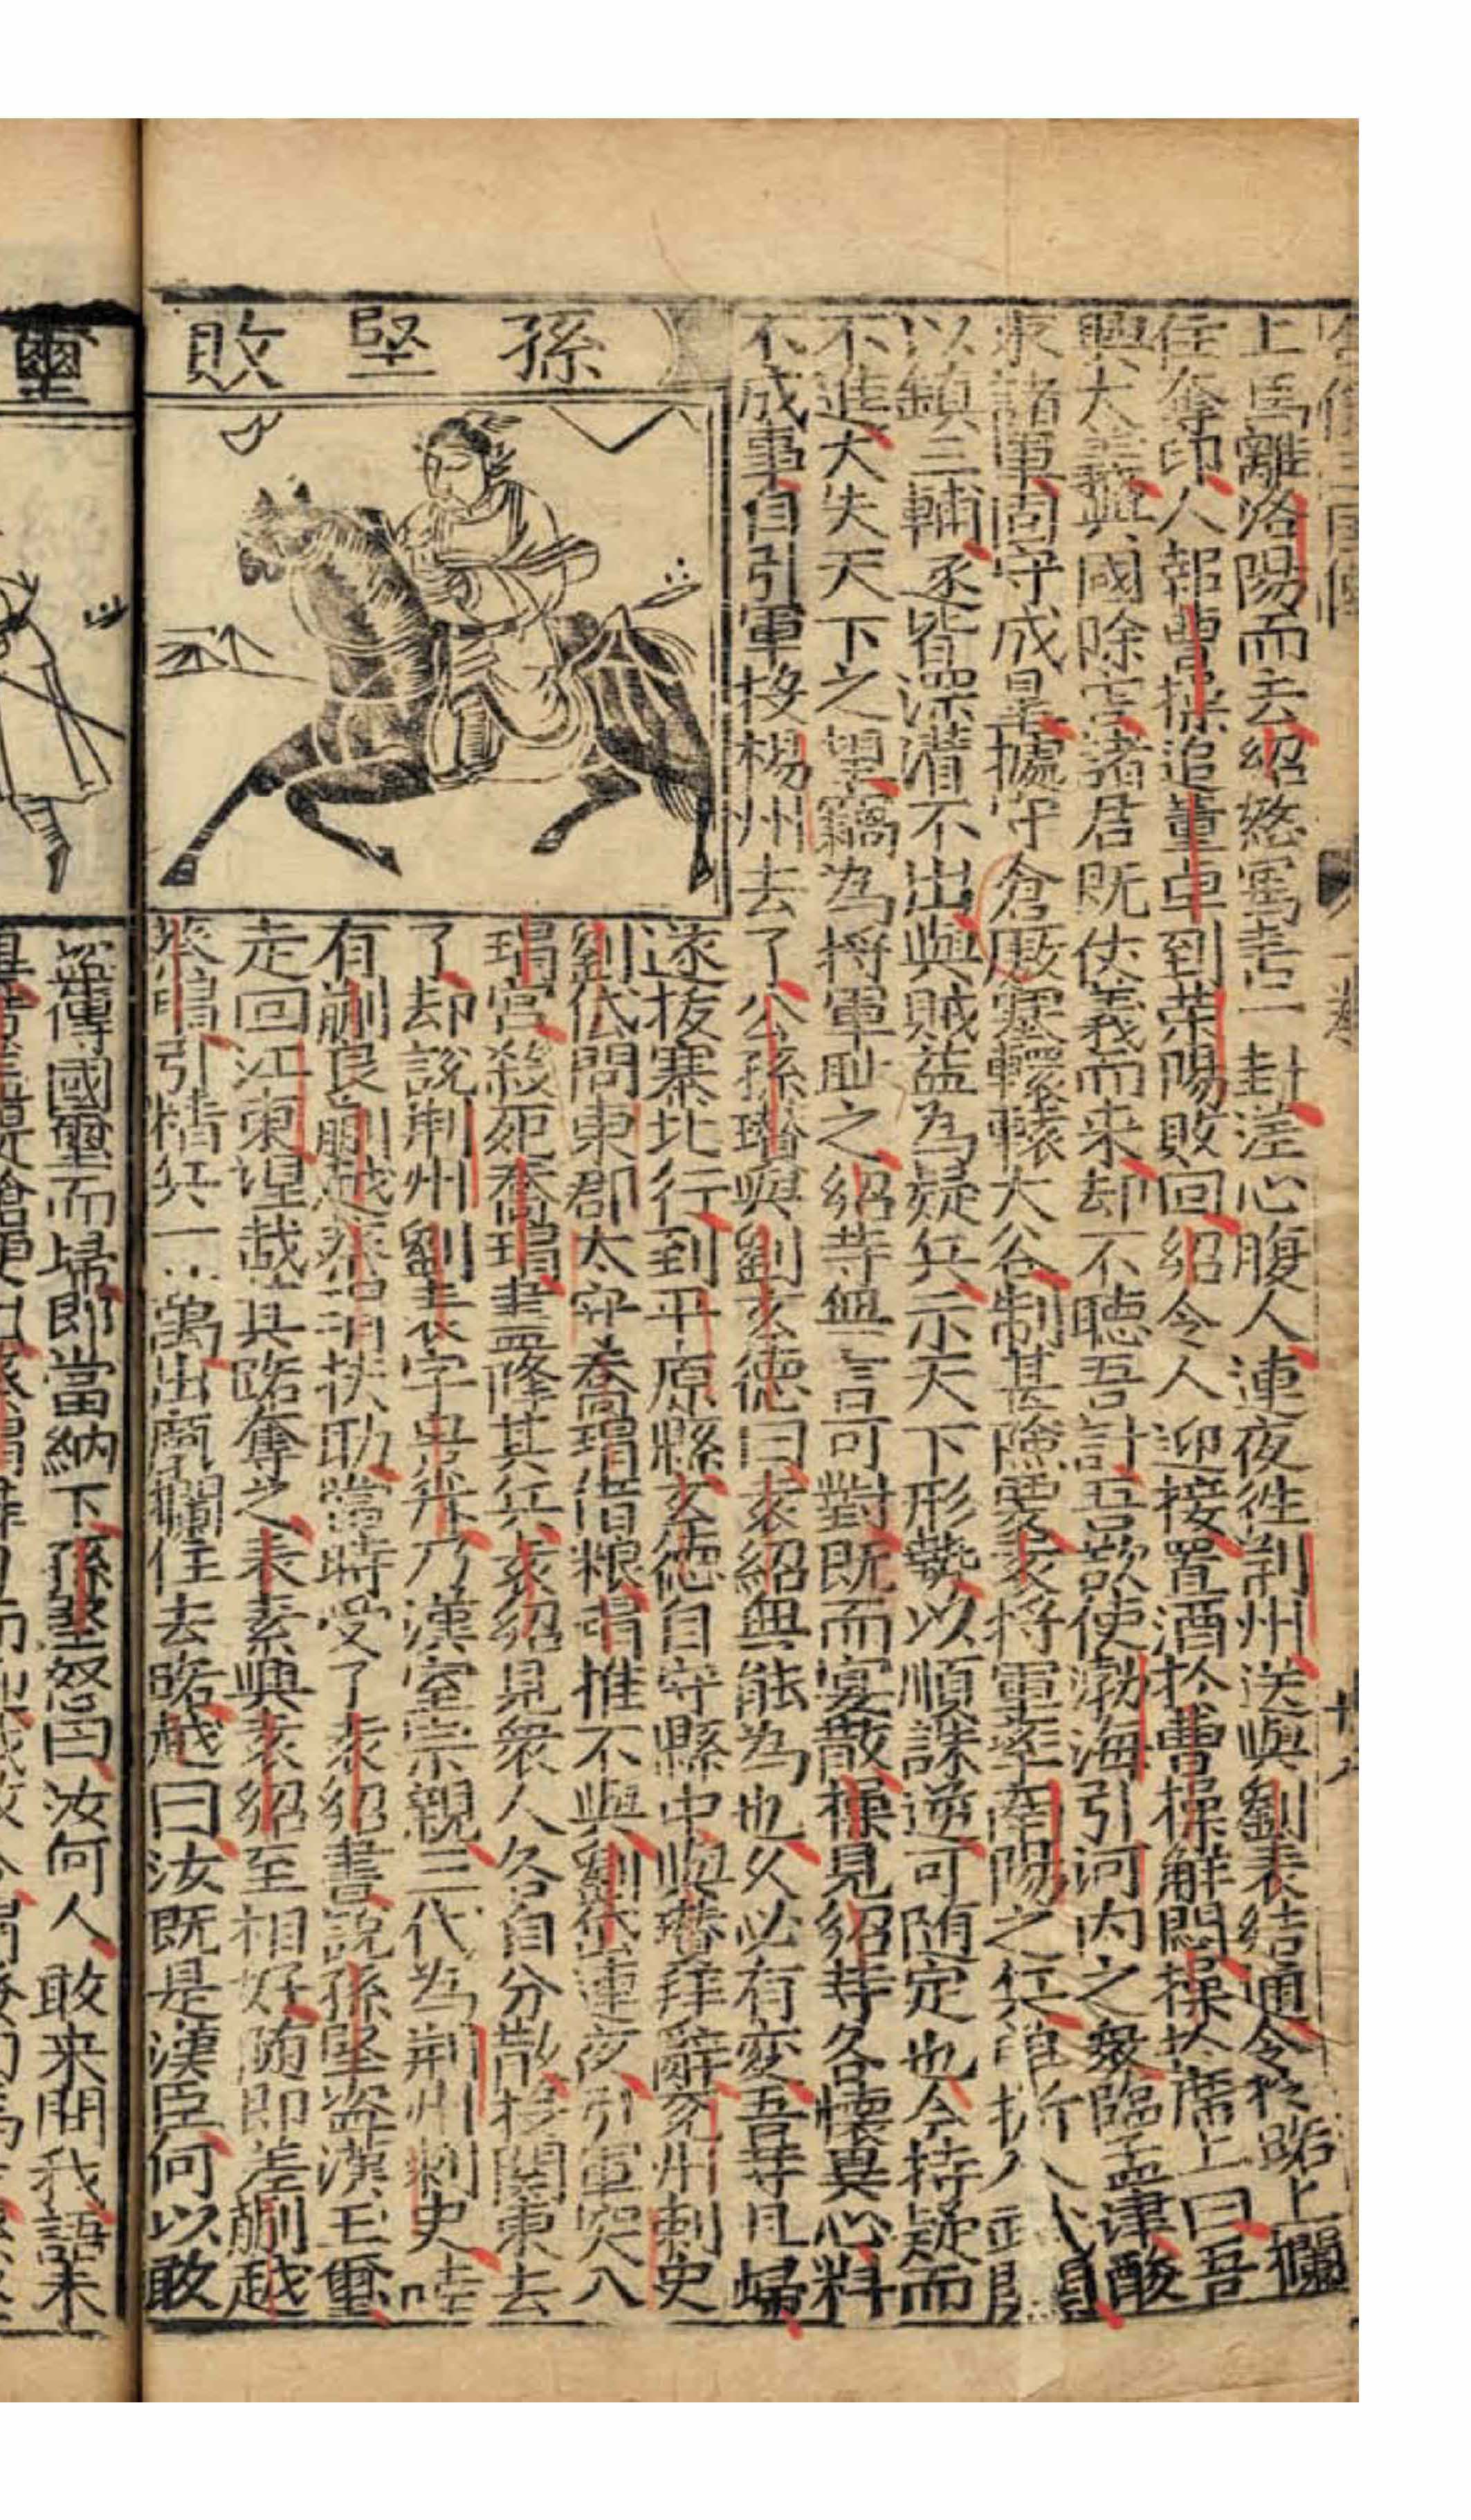 上馬離洛陽而去紹怒寫書一封差心腹人連夜徃荆州送與劉表結通令於路上攔
住奪印人報曹操追董卓到荣陽敗回紹令人迎接置酒於曹操解悶操於席上曰吾
興大義與國除害諸君既仗義而来却不聽吾計吾欲使渤海引河内之衆臨孟津酸
棗諸軍固守成皐據守倉厫塞轘轅大谷制其險要袁将軍率南陽之兵
以鎮三輔逐皆深溝不出與賊益為疑兵示天下形勢以順誅逆可随定也今持疑而
不進大失天下之望竊為将軍耻之紹等無言可對既而宴散操見紹等各懷異心料
不成事自引軍投楊州去了公孫瓚與劉玄德曰袁紹無能為也乆必有変吾等且歸
孫堅敗
遂拔寨北行到平原縣玄徳自守縣中與瓚拜辭兖州刺史
劉岱問東郡太守喬瑁借粮瑁推不與劉岱連夜引軍突入
瑁宫殺死喬瑁盡降其兵袁紹見衆人各自分散投関東去
了却説荆州劉表字景升乃漢室宗親三代為荆州刺史
有蒯良蒯越蔡瑁扶助當時受了袁紹書説孫堅盗漢玉璽
走回江東望截其路奪之表素與袁紹至相好随即差蒯越
蔡瑁引精兵一萬出商攔住去路越曰汝既是漢臣何以敢
璽
盗傳國璽而歸即當納下孫堅怒曰汝何人敢来問我語未